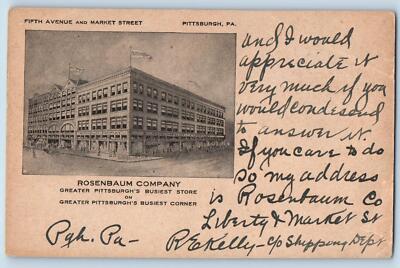 FIFTH AVENUE AND MARKET STREET PITTSBURGH, PA.
ROSENBAUM COMPANY
GREATER PITTSBURGH'S BUSIEST STORE
ON
GREATER PITTSBURGH'S BUSIEST CORNER
and I would
appreciate it
very much if you
would condesend
to answer it.
If you care to do
so my address
is Rosenbaum Co
Liberty & Market St
Pgh. Pa- R E Kelly - c/o Shipping Dept